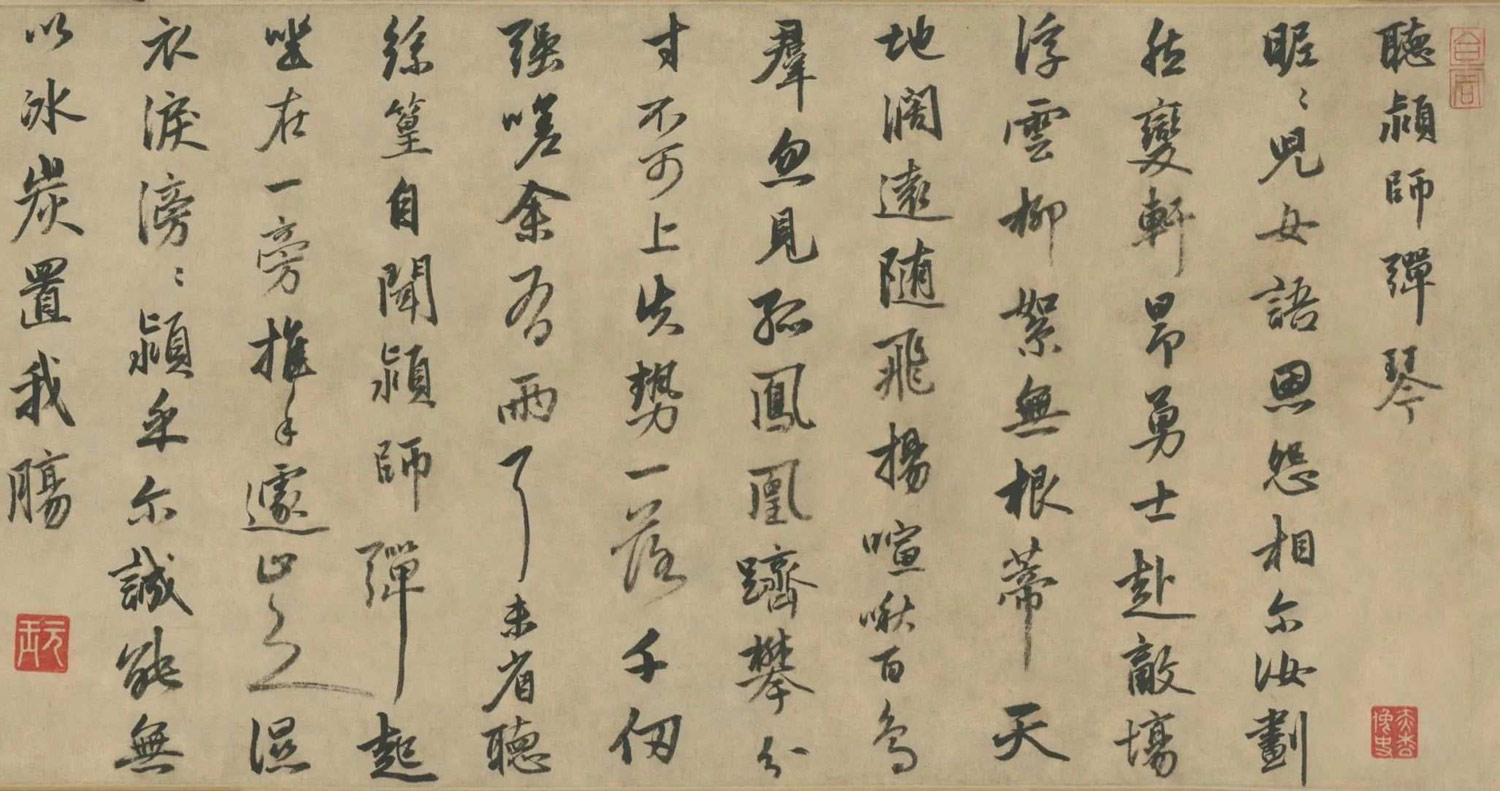 聽潁師彈琴
昵〻兒女語恩怨相尔汝劃
然變軒昂勇士赴敵場
浮雲柳絮無根蒂天
地闊遠随飛揚喧啾百鳥
羣忽見孤鳳凰躋攀分
寸不可上失勢一落千仞
强嗟余有兩耳未省聽
絲篁自聞潁師彈起
坐在一旁推手遽止之濕
衣淚滂〻潁乎尔誠能無
以冰炭置我膓